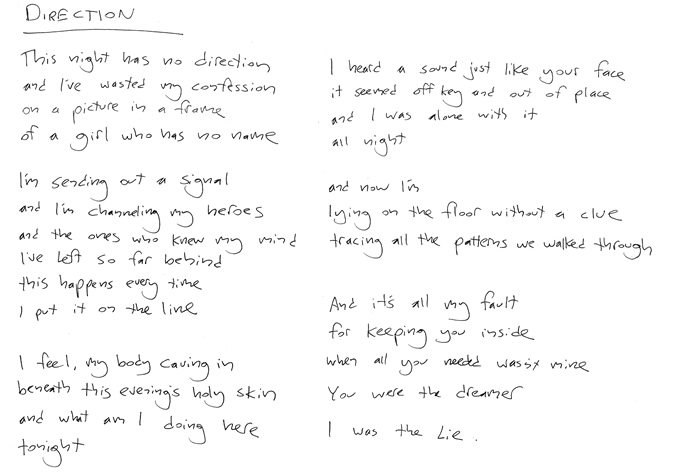 DIRECTION
This night has no direction
and I've wasted my confession
on a picture in a frame
of a girl who has no name
I'm sending out a signal
and I'm channeling my heroes
and the ones who knew my mind
I've left so far behind
this happens every time
I put it on the line
I feel, my body caving in
beneath this evening's holy skin
and what am I doing here
tonight
I heard a sound just like your face
it seemed off key and out of place
and I was alone with it
all night
and now I'm
lying on the floor without a clue
tracing all the patterns we walked through
And it's all my fault
for keeping you inside
when all you needed mine
You were the dreamer
I was the Lie.